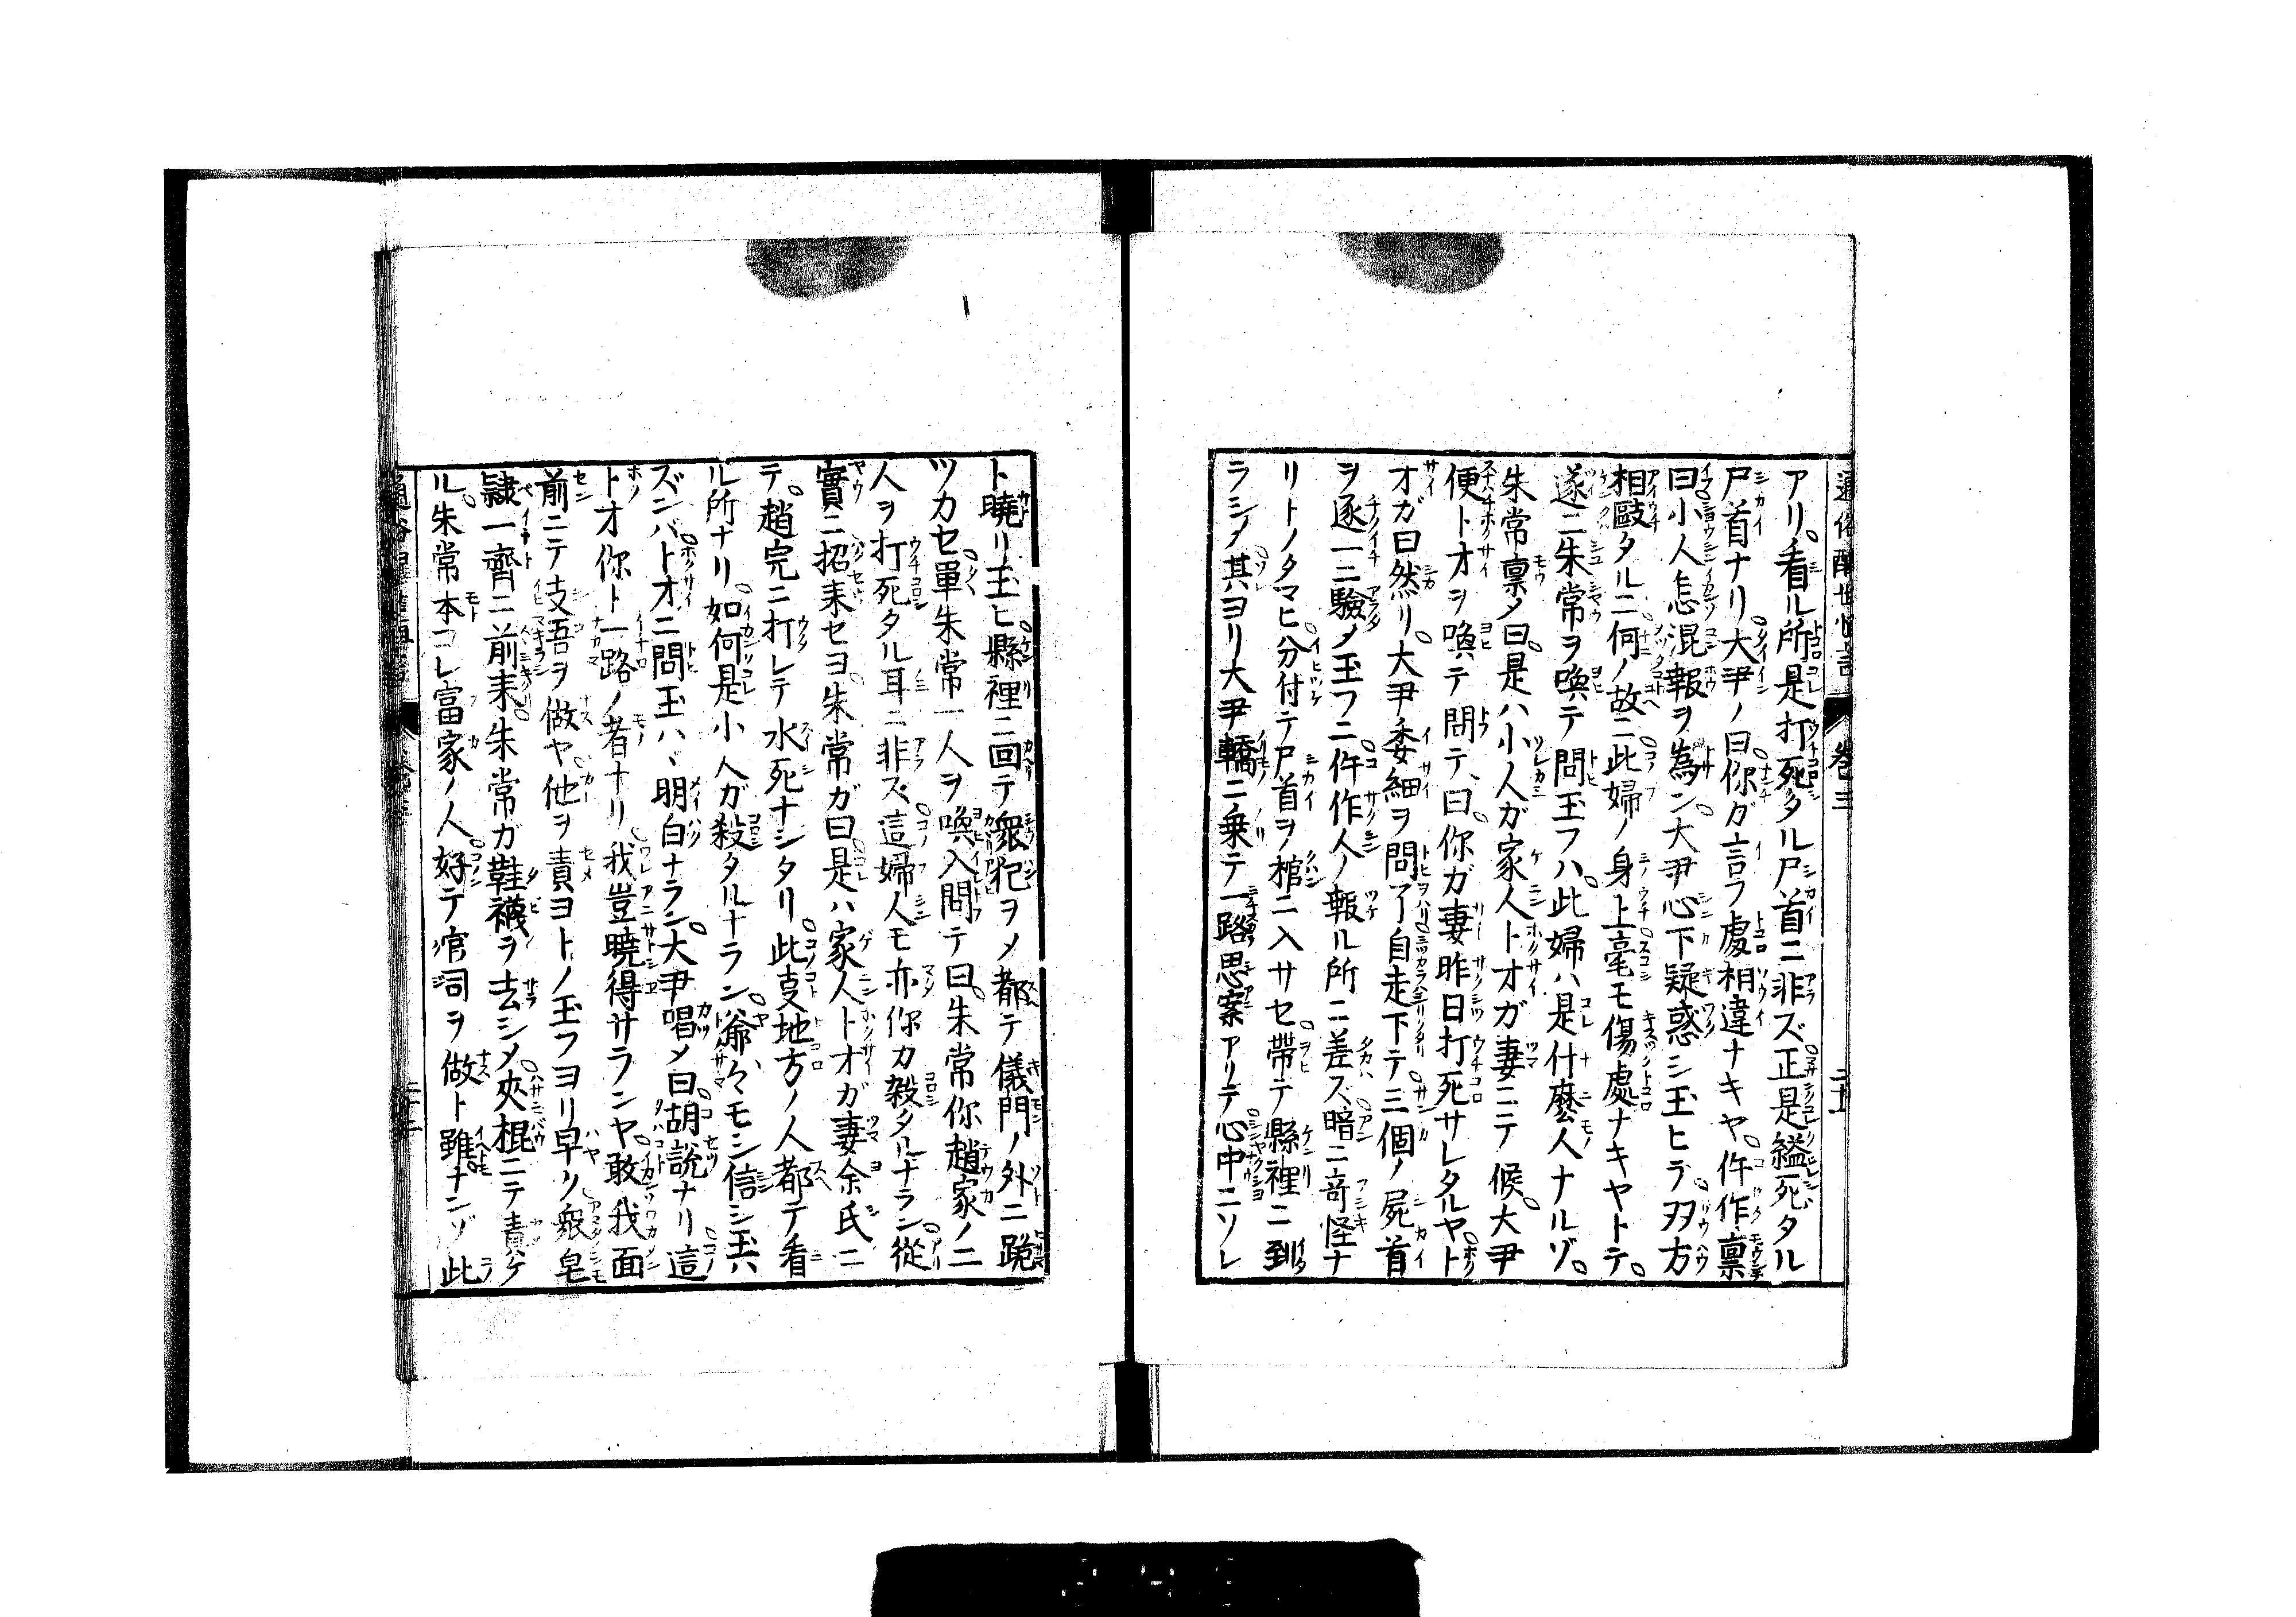 通俗醒世恒言 巻三
アリ。看ル所是打死タル尸首ニ非ズ正是縊死タル
尸首ナリ。大尹ノ曰。你ガ言フ處相違ナキヤ。仵作稟
曰小人怎混報ヲ為ン。大尹心下疑惑シ玉ヒ。刄方
相毆タルニ何ノ故ニ此婦ノ身上毫モ傷處ナキヤトテ。
遂ニ朱常ヲ喚テ問玉フハ。此婦ハ是什麼人ナルゾ。
朱常禀メ曰。是ハ小人ガ家人卜才ガ妻ニテ候。大尹
便卜才ヲ喚テ問テ曰。你ガ妻昨日打死サレタルヤ。卜
才ガ曰然リ。大尹委細ヲ問了自走下テ三個ノ屍首
ヲ逐一ニ驗メ玉フニ仵作人ノ報ル所ニ差ズ。暗ニ竒怪ナ
リトノタマヒ。分付テ尸首ヲ棺ニ入サセ。帶テ縣裡ニ到
ラシメ。其ヨリ大尹轎ニ乗テ一路思案アリテ。心中ニソレ
ト曉リ玉ヒ。縣裡ニ回テ衆犯ヲメ都テ儀門ノ外ニ跪
ツカセ。單朱常一人ヲ喚入問テ曰。朱常你趙家ノ二
人ヲ打死タル耳ニ非ズ。這婦人モ亦你カ殺タルナラン。從
實ニ招耒セヨ。朱常ガ曰。是ハ家人卜才ガ妻余氏ニ
テ。趙完ニ打レテ水死ナシタリ。此㕝地方ノ人都テ看
ル所ナリ。如何是小人ガ殺タルナラン。爺々モシ信シ玉ハ
ズンバ。卜才ニ問玉ハヾ明白ナラン。大尹喝メ曰。胡説ナリ。這
卜才你ト一路ノ者ナリ。我豈曉得サランヤ。敢我面
前ニテ支吾ヲ做ヤ。他ヲ責ヨトノ玉フヨリ早ク。衆皂
隷一齊ニ前耒。朱常ガ鞋襪ヲ去シメ。夾棍ニテ責ケ
ル。朱常本コレ富家ノ人。好テ官司ヲ做ト雖。ナンゾ此